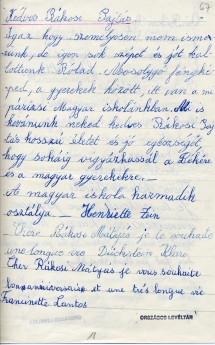 67
Kedves Rákosi Pajtás
Igaz hogy személyesen nem isme-
rünk, de igen sok szépet és jót hal-
lottunk Rólad. Mosolygó fényké-
ped, a gyerekek között, itt van a mi
párizsi Magyar iskolánkban. Mi is
kivánunk neked kedves Rákosi Paj
tás hosszú életet és jó egészséget,
hogy sokáig vigyázhassál a Békére
és a magyar gyerekekre.
A magyar iskola harmadik
osztálya. — Henriette
Rákosi Mátyás je te souhaite
une longue vie
Cher Rákosi Mátyás je vous souhaite
anniversaire et une très longue vie
Francinette Lantos
ORSZÁGOS LEVÉLTÁR